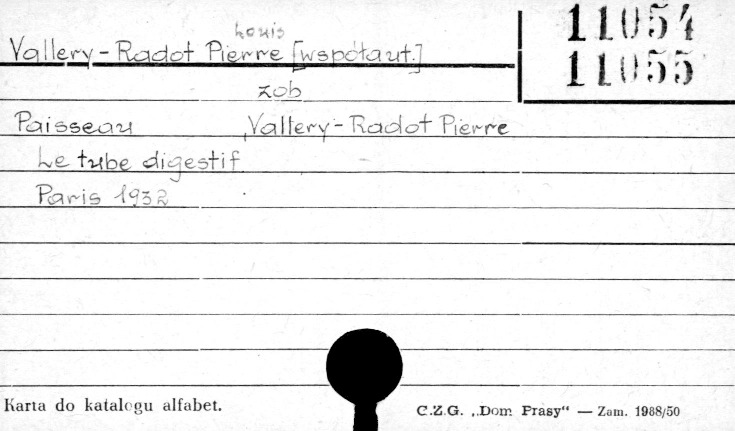 Louis
Vallery-Radot Pierre [współaut.]
11054
11055
zob
Paisseau , Vallery-Radot Pierre
Le tube digestif
Paris 1932
Karta do katalogu alfabet.
C.Z.G. „Dom Prasy“ — Zam. 1988/50